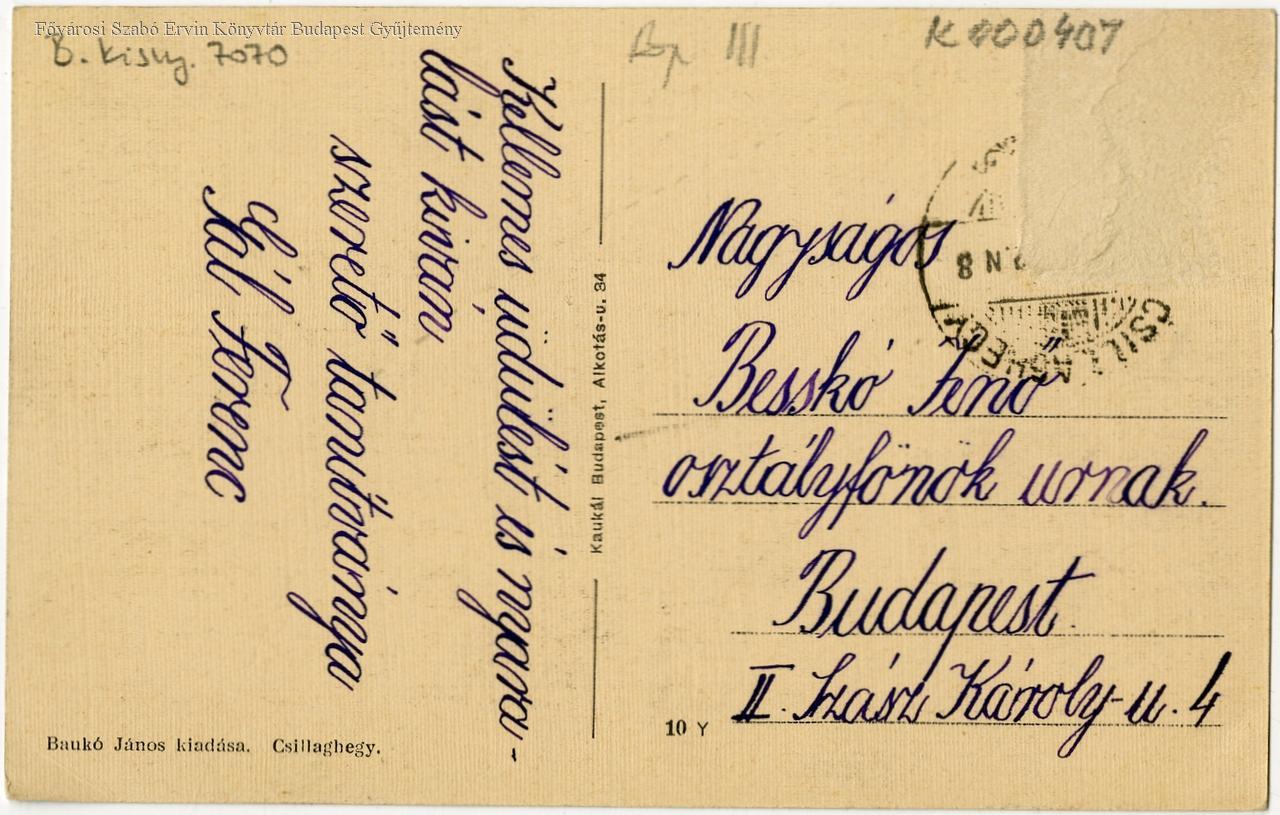 Fővárosi Szabó Ervin Könyvtár Budapest Gyűjtemény
B. Kisny. 7070
Bp III
K 000407
Kellemes üdülést és nyara-
lást kiván
szerető tanítványa
Gál Ferenc
Baukó János kiadása. Csillaghegy.
Kaukál Budapest, Alkotás-u. 34
CSILLAGHEGY
Nagyságos
Besskó Jenő
osztályfőnök urnak.
Budapest.
II. Szász Károly-u. 4
10 Y